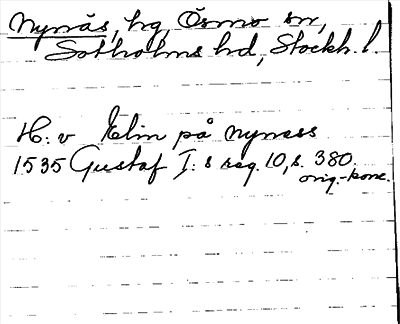 Nynäs, hg, Ösmo sn,
Sotholms hd, Stockh. l.
H. v Elin på Nyness
1535 Gustaf I:s reg. 10, s. 380.
orig.-konc.